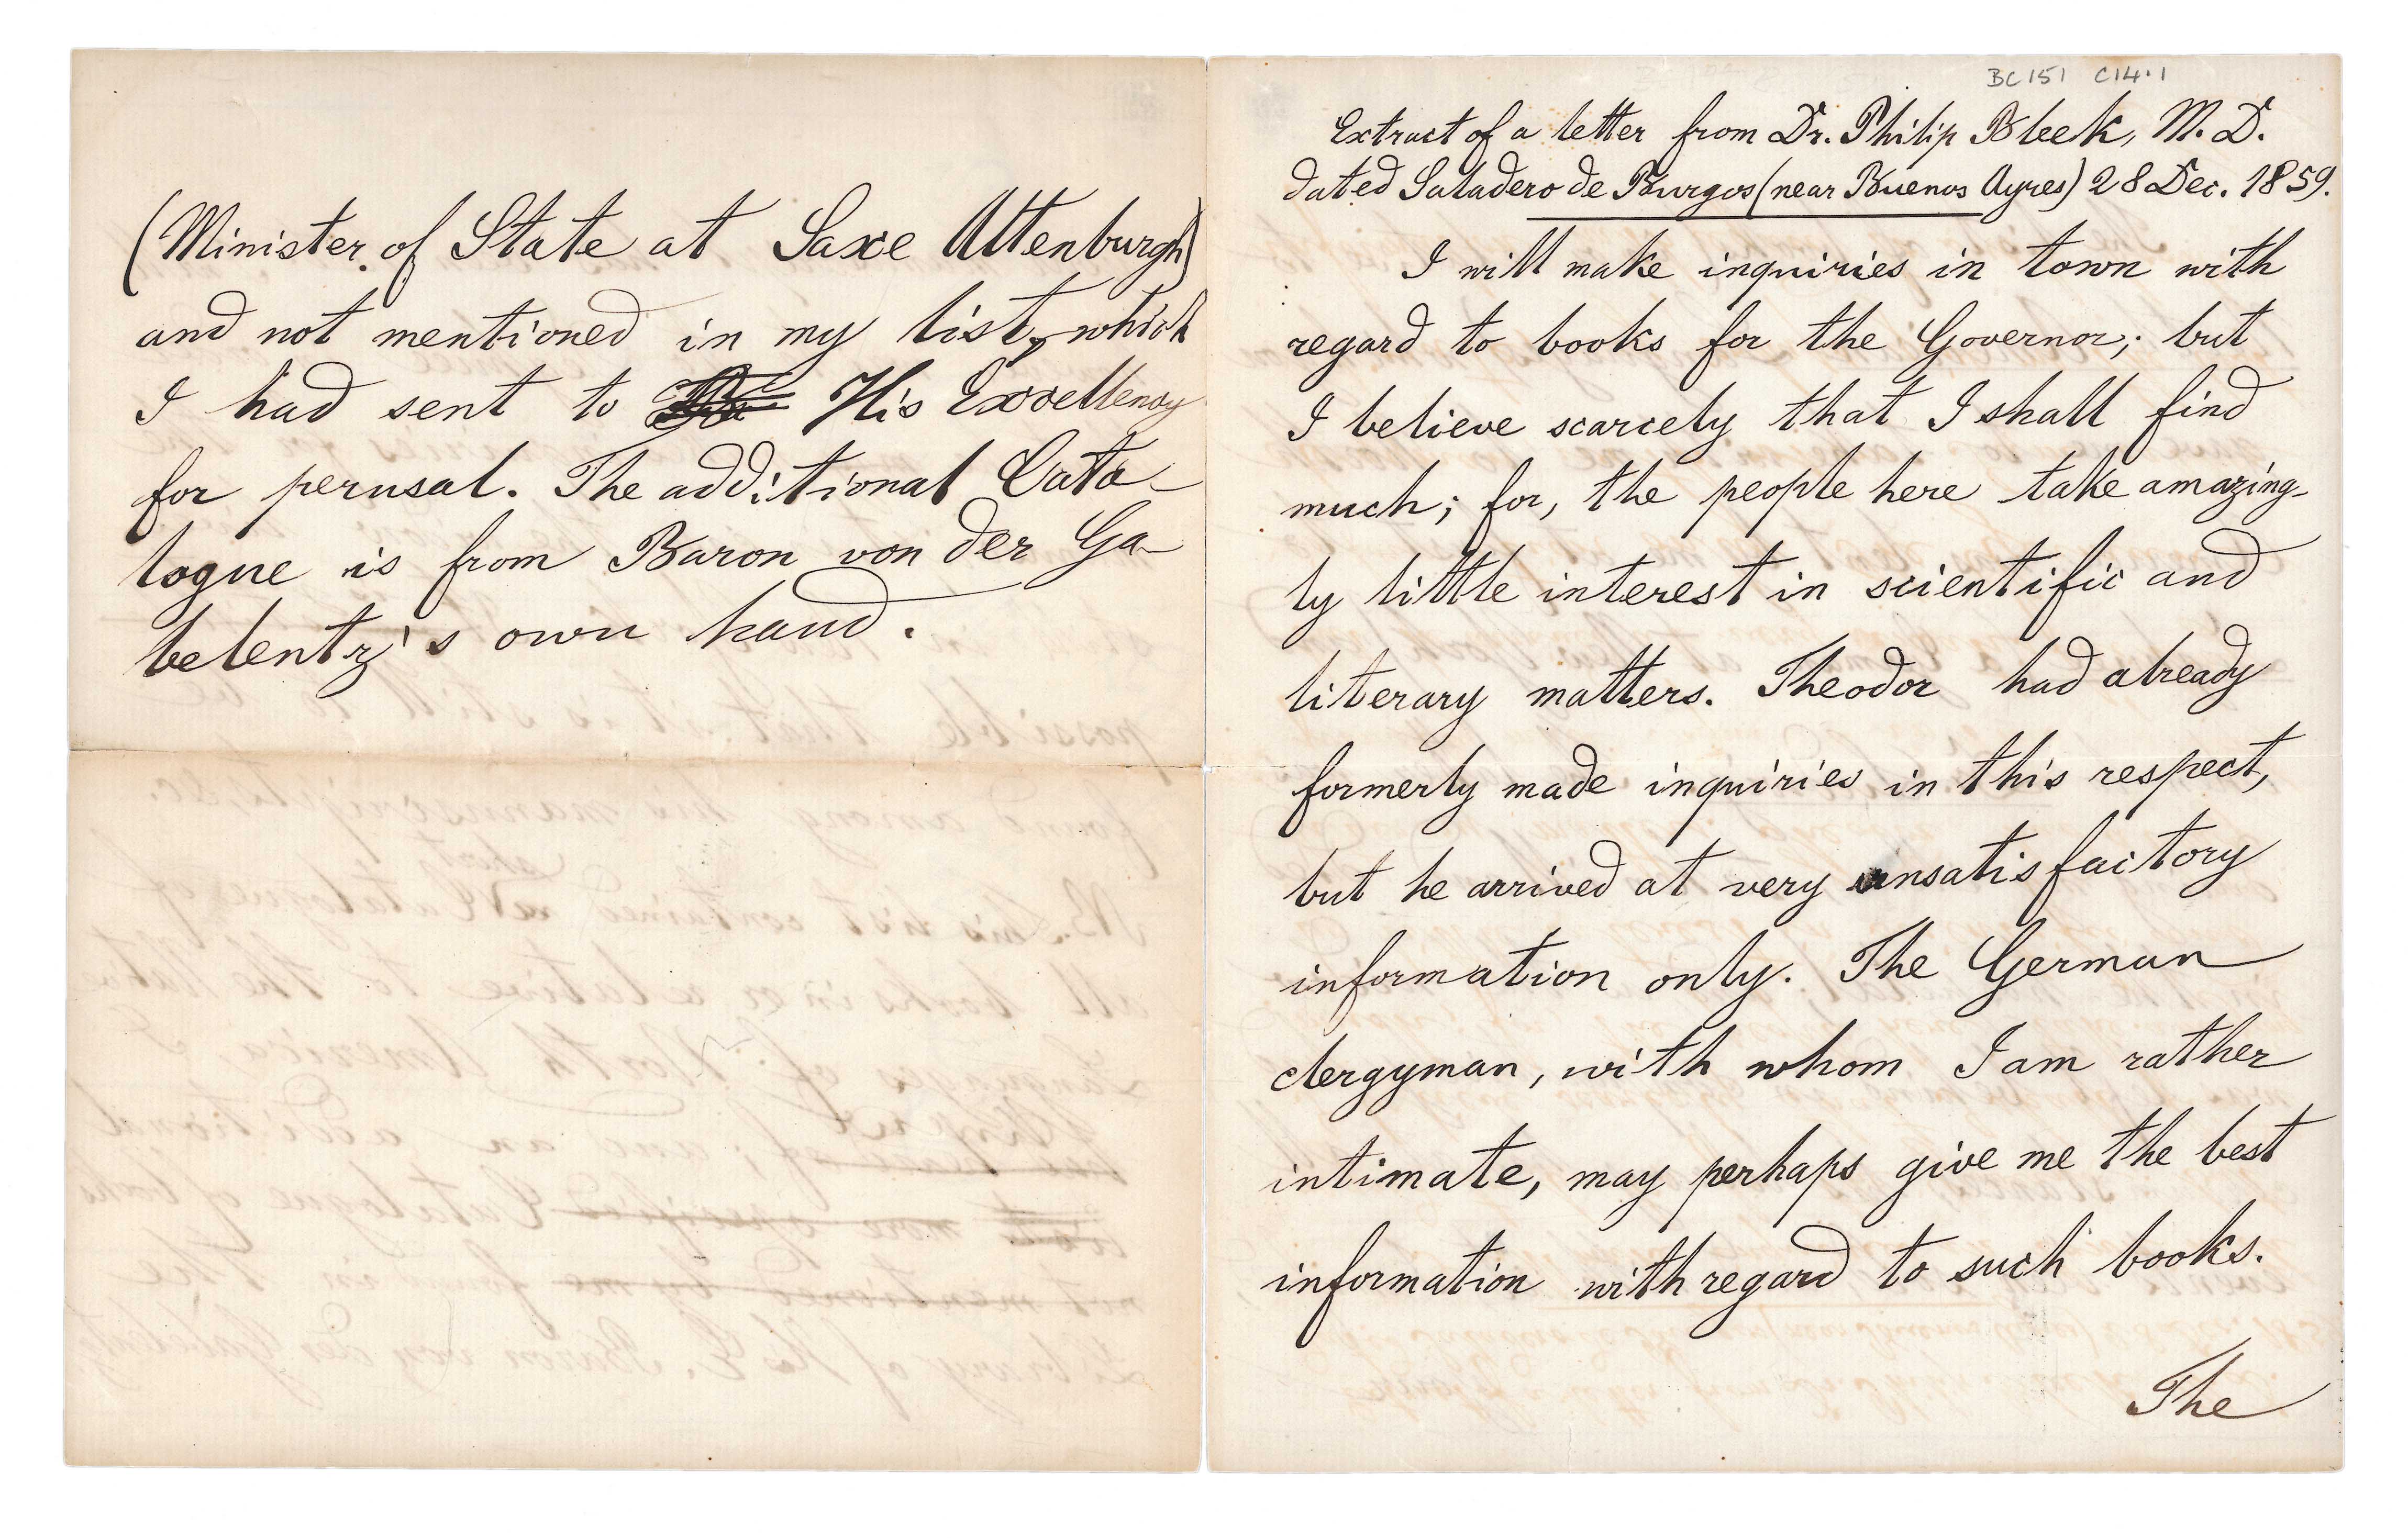 (Minister of State at Saxe Altenburgh)
and not mentioned in my list, which
I had sent to His Excellency
for perusal. The additional Cata-
logue is from Baron von der Ga-
belentz's own hand.
BC151 C14.1
Extract of a letter from Dr. Philip Bleek, M. D.
dated Saladero de Burgos (near Buenos Ayres) 28 Dec. 1859.
I will make inquiries in town with
regard to books for the Governor; but
I believe scarcely that I shall find
much; for, the people here take amazing-
ly little interest in scientific and
literary matters. Theodor had already
formerly made inquiries in this respect,
but he arrived at very unsatisfactory
information only. The German
clergyman, with whom I am rather
intimate, may perhaps give me the best
information with regard to such books.
The